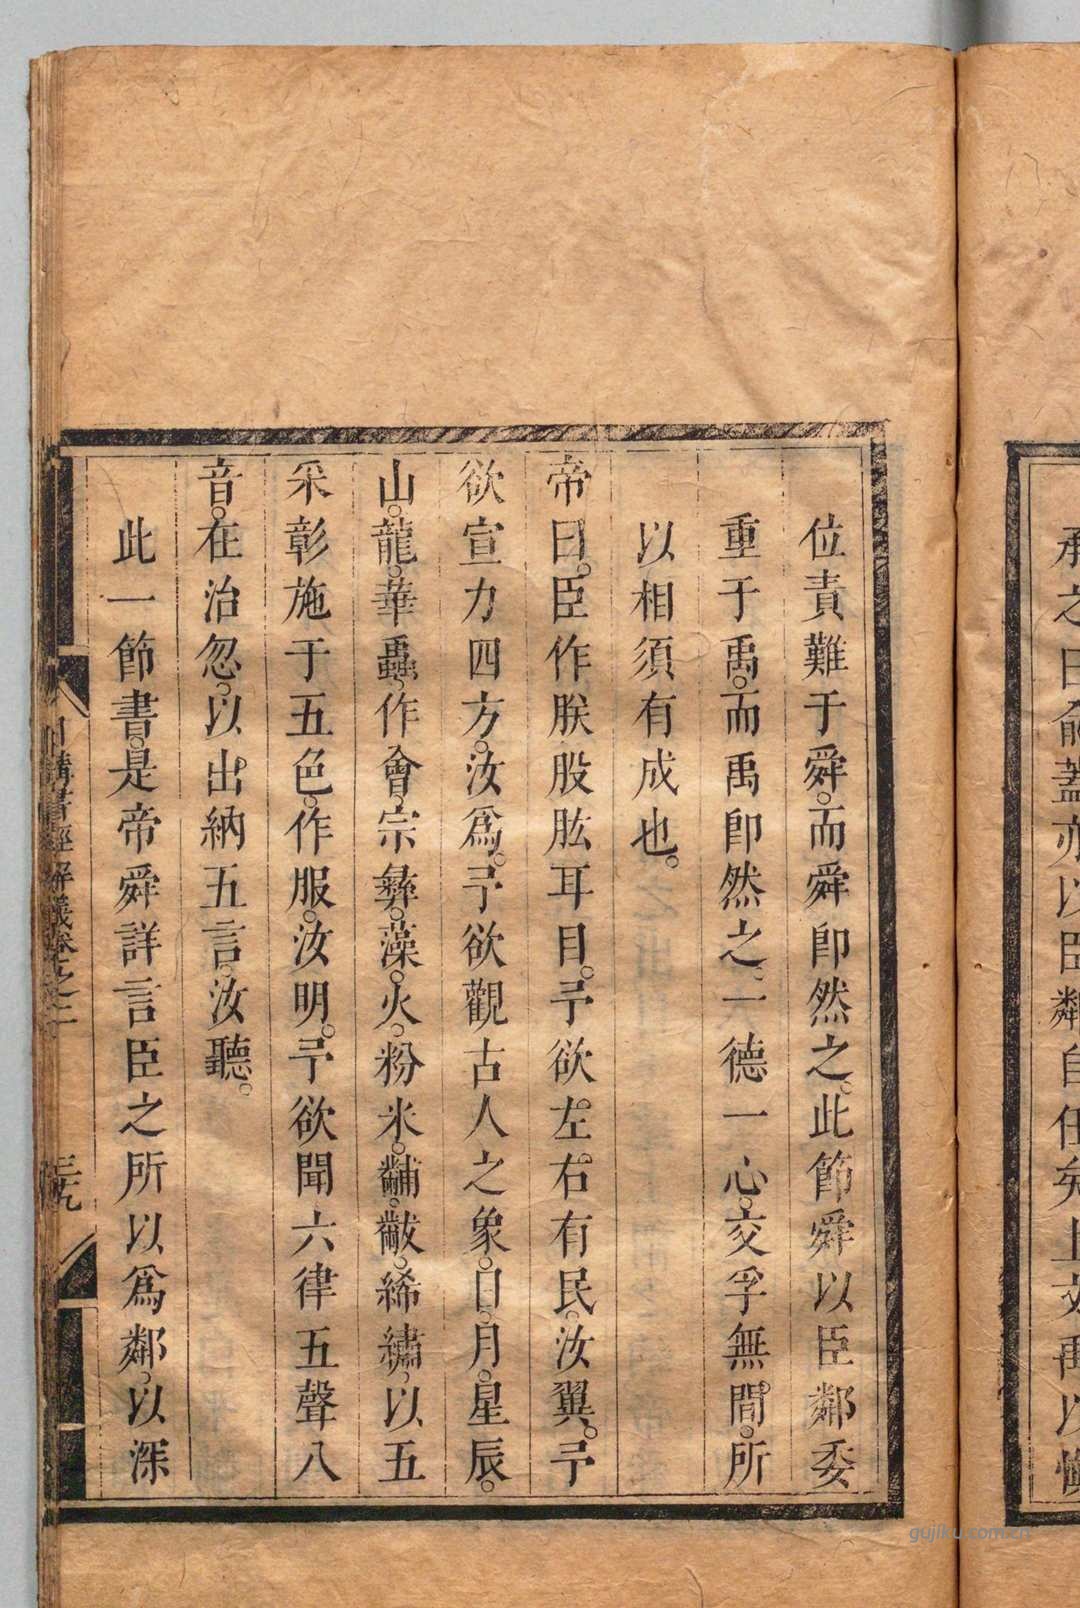 承之曰俞蓋亦以臣鄰自任矣上文禹以慎
位責難于舜。而舜卽然之。此節舜以臣鄰委
重于禹。而禹卽然之。一德一心。交孚無間。所
以相須有成也。
帝曰。臣作朕股肱耳目。予欲左右有民。汝翼。予
欲宣力四方。汝爲。予欲觀古人之象。日。月。星辰。
山。龍。華蟲。作會。宗彝。藻。火。粉米。黼。黻。絺繡。以五
采彰施于五色。作服。汝明。予欲聞六律五聲八
音。在治忽。以出納五言。汝聽。
此一節書。是帝舜詳言臣之所以爲鄰。以深
日講書經解義卷之二
三九
gujiku.com.cn